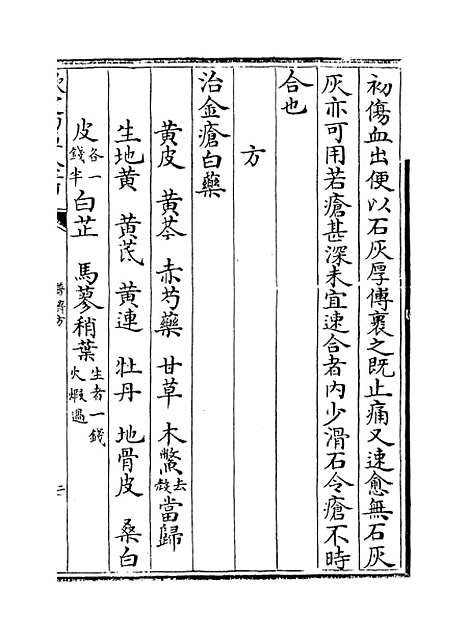 初傷血出便以石灰厚傅裹之既止痛又速愈無石灰
灰亦可用若瘡甚深未宜速合者內少滑石令瘡不時
合也
方
治金瘡白藥
黃皮　黃芩　赤芍藥　甘草　木鱉去殼當歸
生地黃　黃芪　黃連　牡丹　地骨皮　桑白
皮各一錢半白芷　馬蓼稍葉生者一錢火煅過